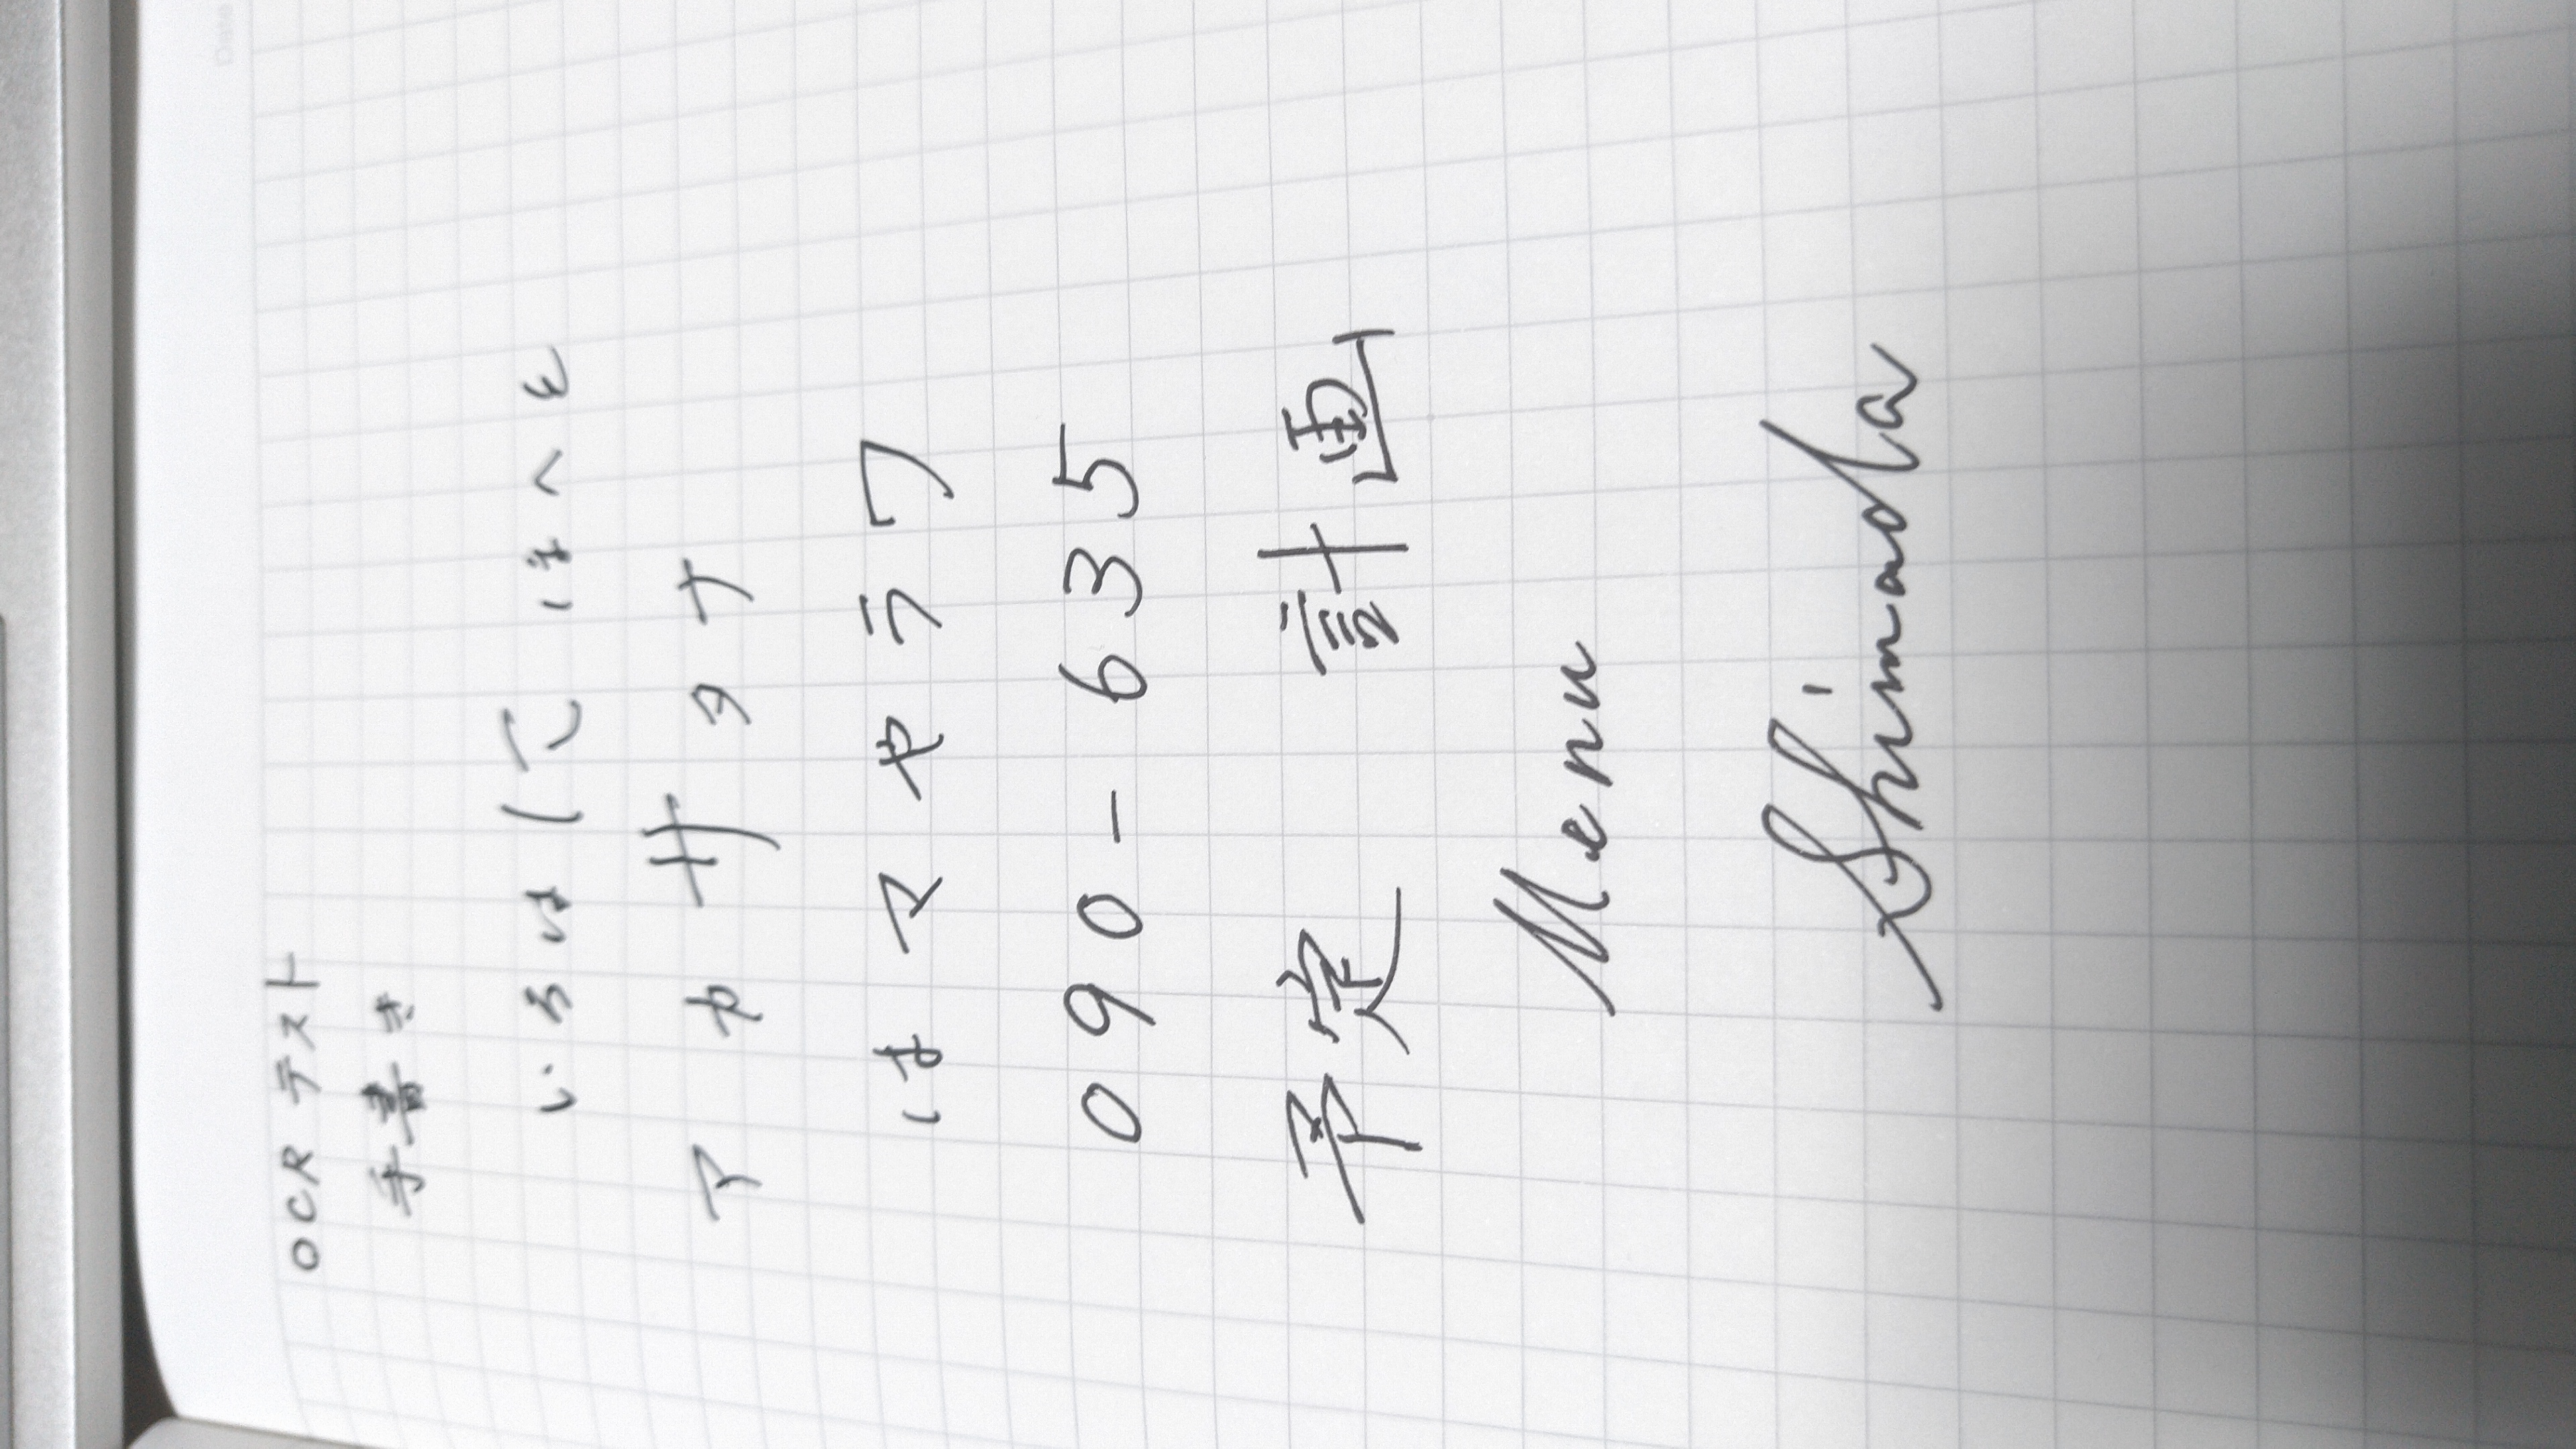 Date
OCR テスト
手書き
いろはにほへと
アカサタナ
はマヤラワ
090-635
予定 計画
Menu
Shimada